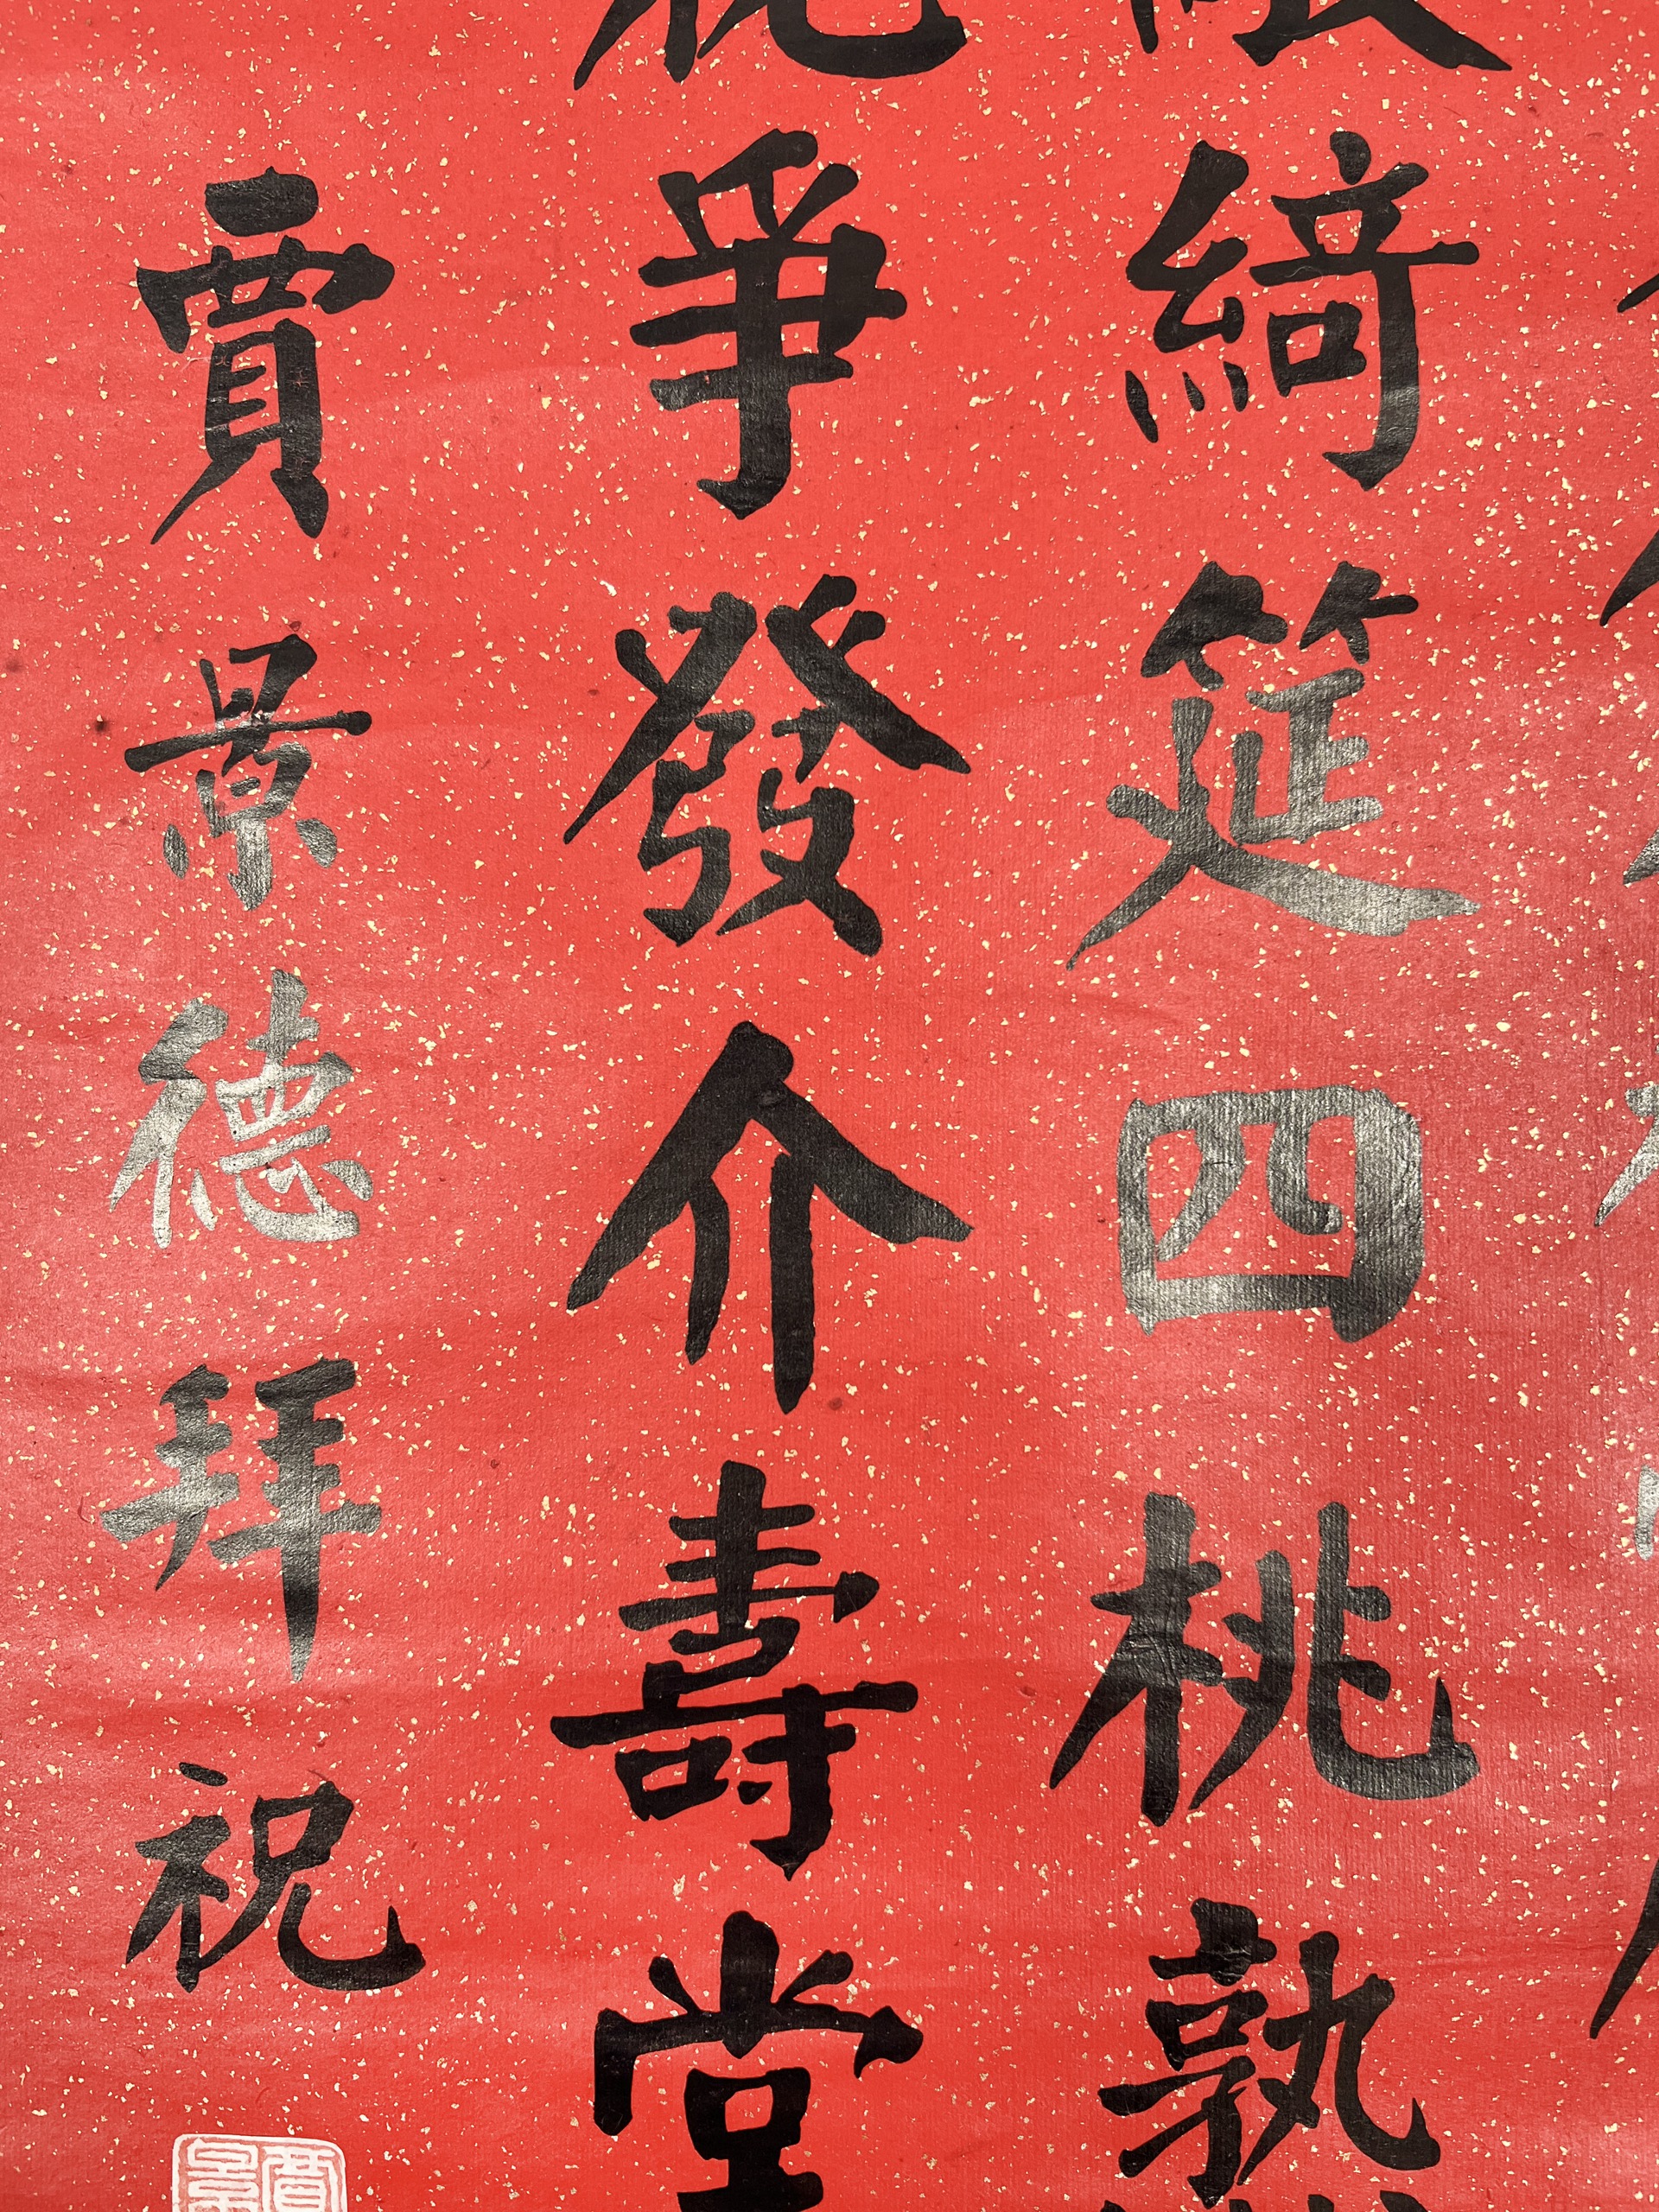 綺筵四桃熟
爭發介壽堂
賈景德拜祝